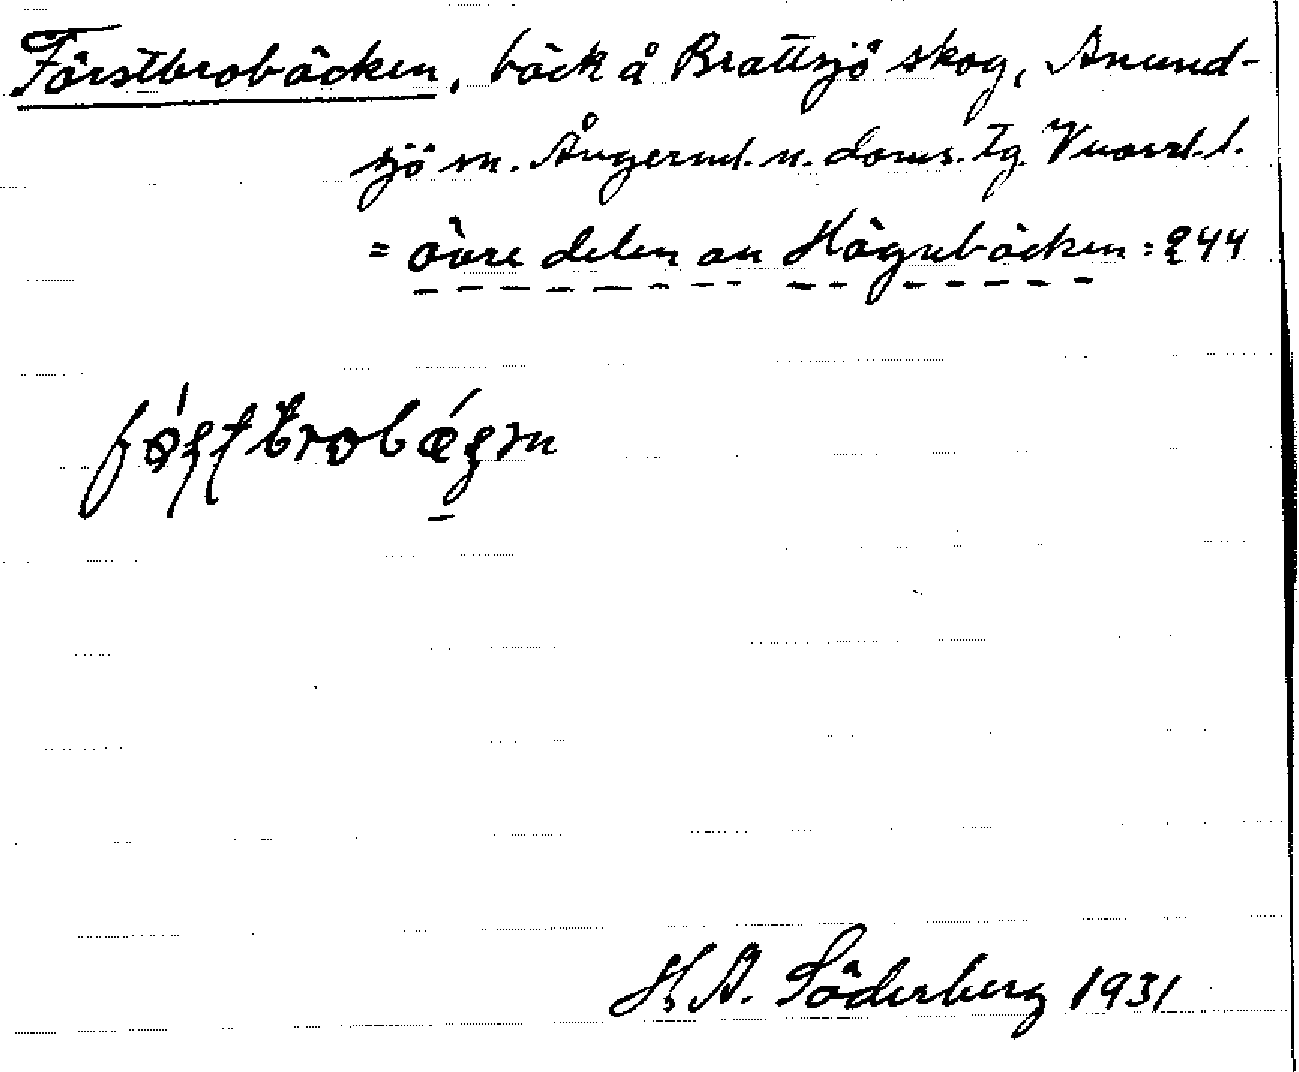 Förstbrobäcken, bäck å Brattsjö skog, Anund-
sjö sn. Ångerml. n. doms. tg. Vnorrl. l.
= övre delen av Högnbäcken: 244
H A. Söderberg 1931